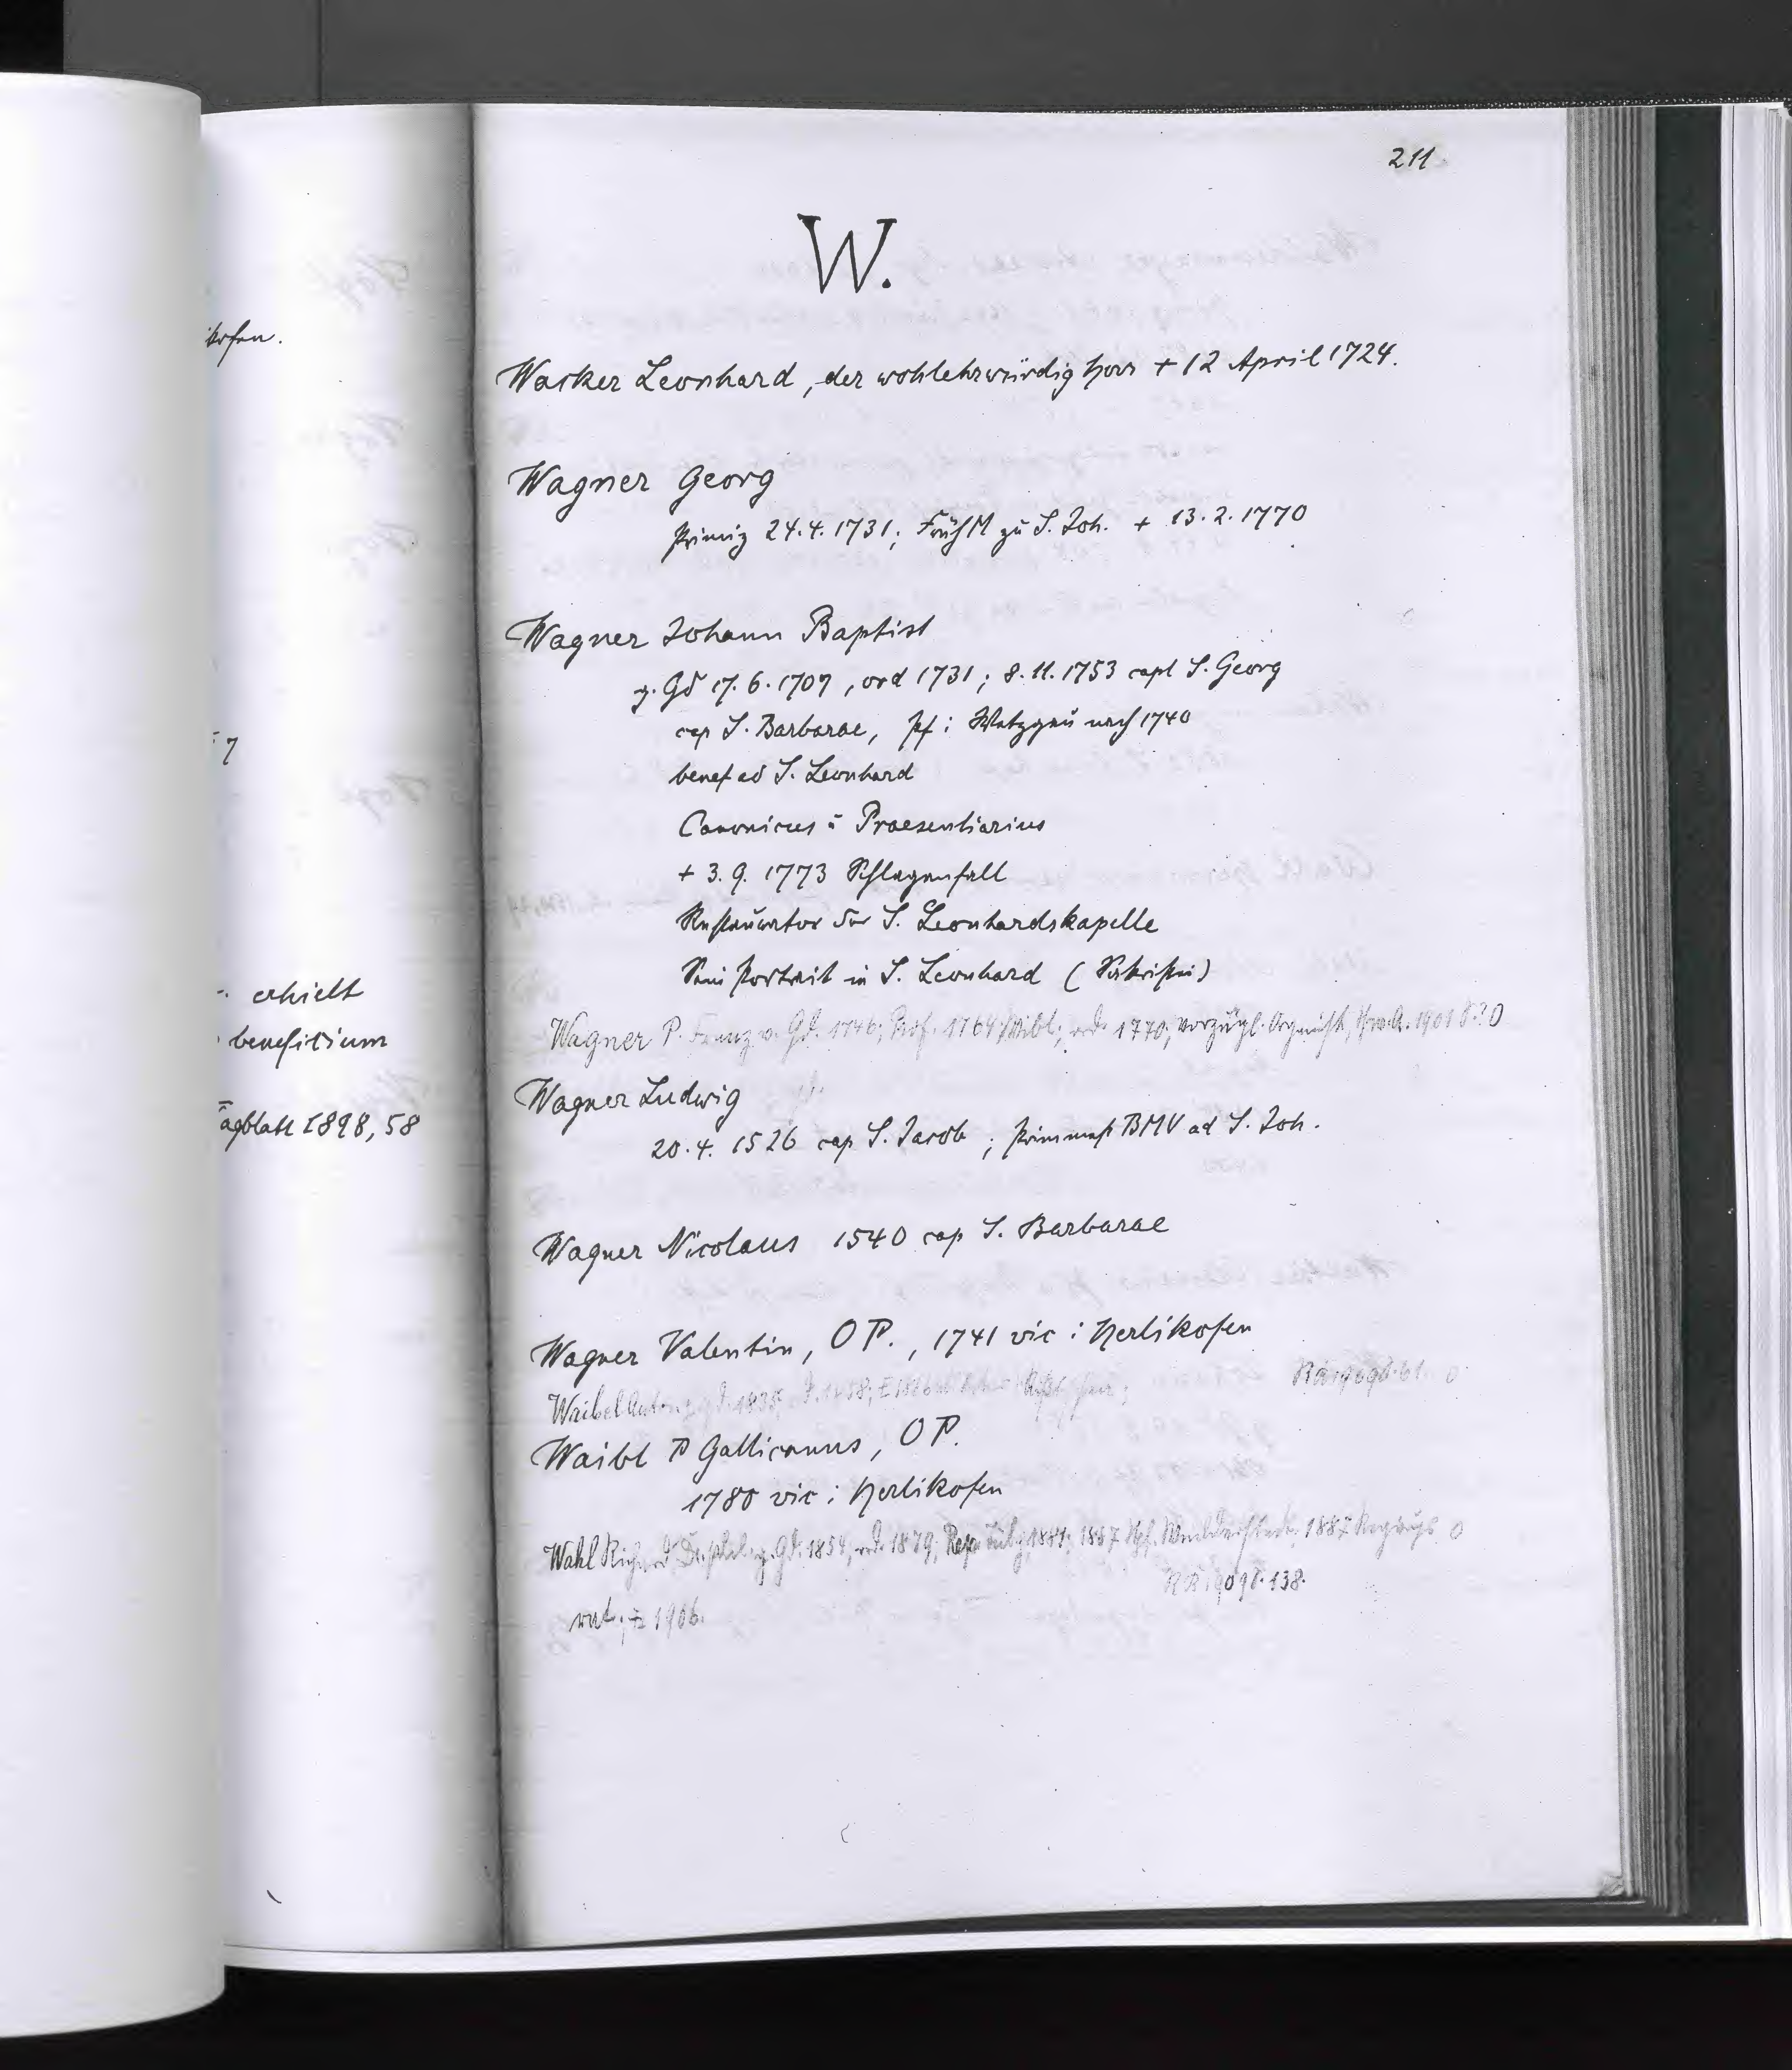 ikofen.
7
erhielt
benefitium
agblatt 1898, 58
211
W.
Wacker Leonhard, der wohlehrwürdig Herr + 12 April 1724.
Wagner Georg
Primiz 24.4.1731; FrühM zu S. Joh. + 13.2.1770
Wagner Johann Baptist
z. Gd 17.6.1707, ord 1731; 8.11.1753 capl S. Georg
cap S. Barbarae, Pf i Wetzgau nach 1740
benef ad S. Leonhard
Canonicus u Praesentiarius
+ 3.9.1773 Schlagenfall
Restaurator der S. Leonhardskapelle
Sein Portrait in S. Leonhard (Sakristei)
Wagner P. Franz v. Gd. 1746; Prof. 1764 Wibl; ord. 1770; vorzügl. Organist, 1901 0
Wagner Ludwig
20.4.1526 cap S. Jacob; primmess BMV ad S. Joh.
Wagner Nicolaus 1540 cap S. Barbarae
Wagner Valentin, OP., 1741 vic i Herlikofen
Waibel Anton z. gd. 1835, 0
Waibl P Gallicanus, OP.
1780 vic i Herlikofen
Wahl Richard z. Gd. 1854, ord. 1879; 1887 0
RR 138.
nat; + 1906.